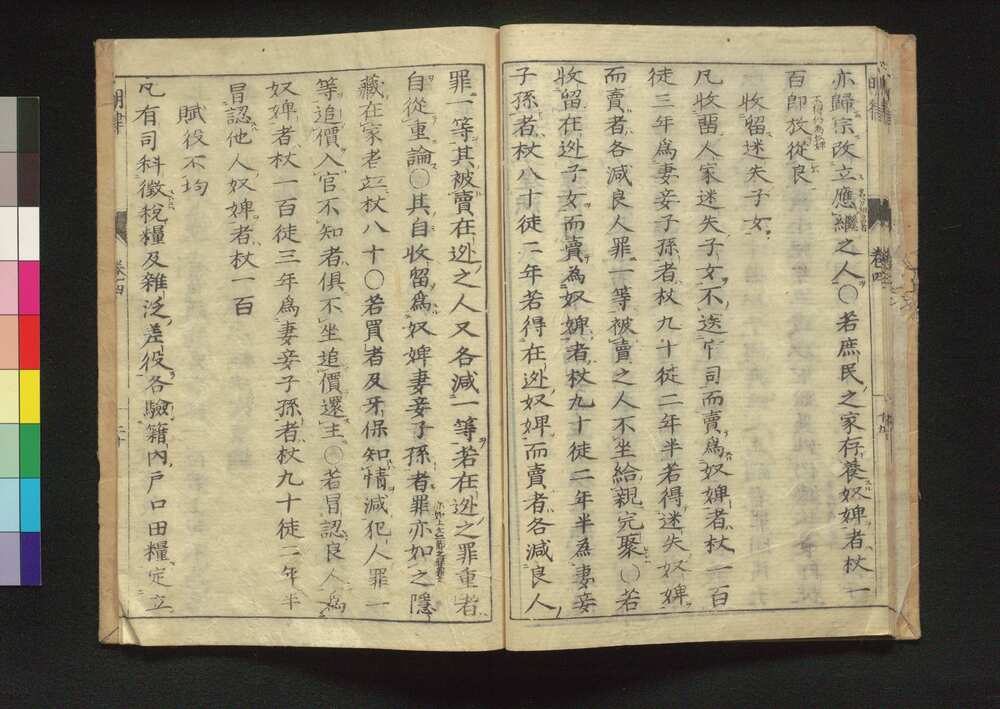 亦歸宗改立應繼之人○若庶民之家存養奴婢者杖一
百即放從良
收留迷失子女
凡收留人家迷失子女不送官司而賣爲奴婢者杖一百
徒三年爲妻妾子孫者杖九十徒二年半若得迷失奴婢
而賣者各減良人罪一等被賣之人不坐給親完聚○若
收留在逃子女而賣爲奴婢者杖九十徒二年半爲妻妾
子孫者杖八十徒二年若得在逃奴婢而賣者各減良人
罪一等其被賣在逃之人又各減一等若在逃之罪重者
自從重論○其自收留爲奴婢妻妾子孫者罪亦如之隱
藏在家者並杖八十○若買者及牙保知情減犯人罪一
等追價入官不知者俱不坐追價還主○若冒認良人爲
奴婢者杖一百徒三年爲妻妾子孫者杖九十徒二年半
冒認他人奴婢者杖一百
賦役不均
凡有司科徵稅糧及雜泛差役各驗籍內戶口田糧定立
明律
卷四
二十